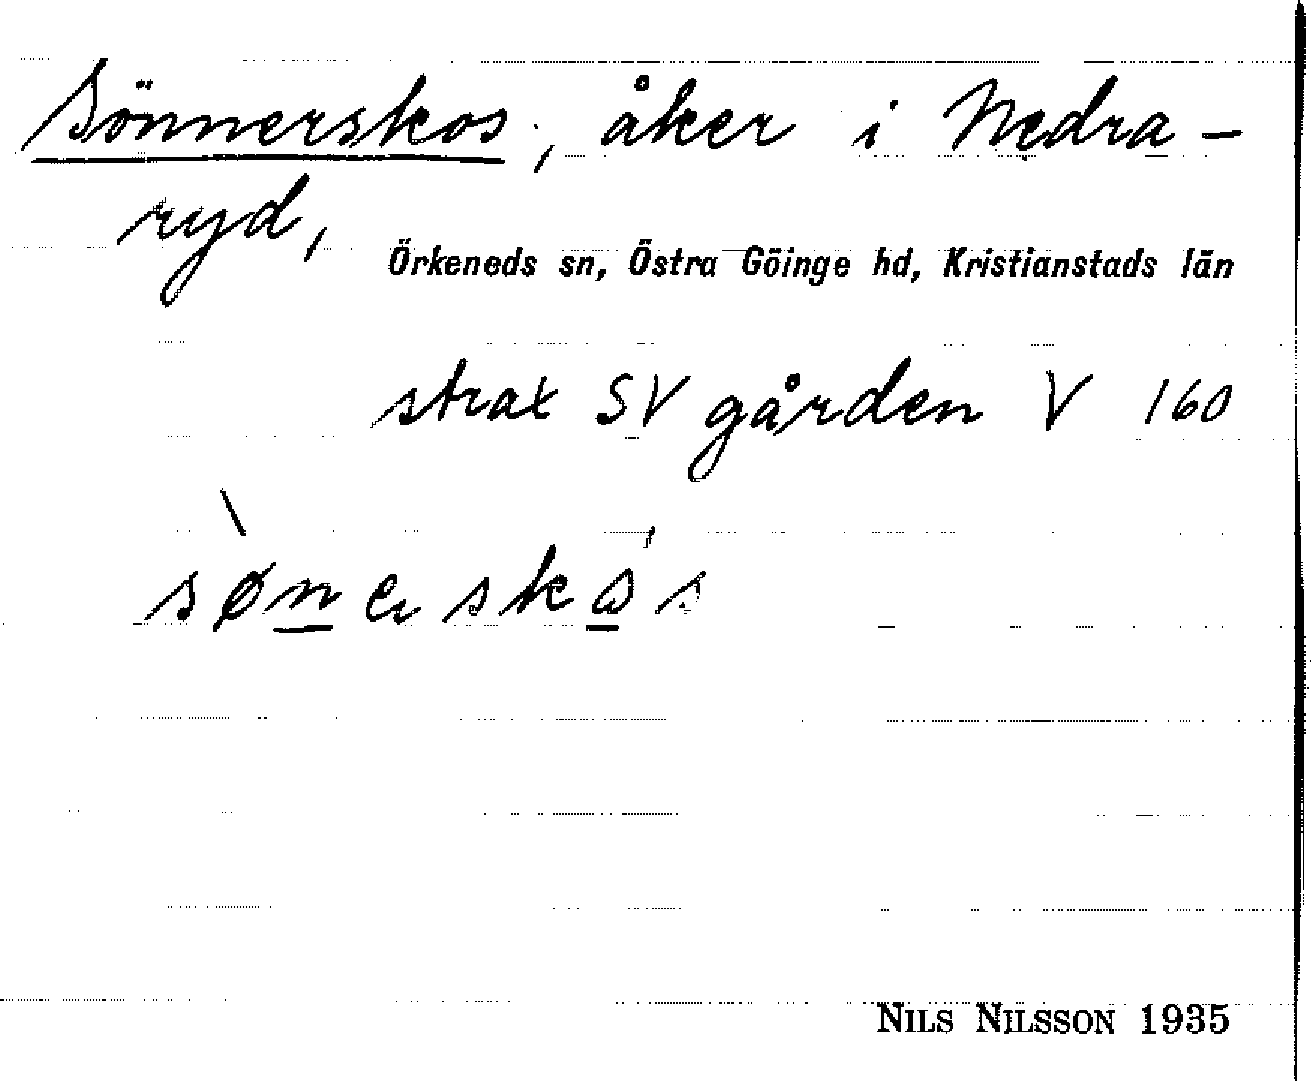 Sönnerskos, åker i Nedra-
ryd,
Örkeneds sn, Östra Göinge hd, Kristianstads län
strax SV gården V 160
sønerskos
NILS NILSSON 1935